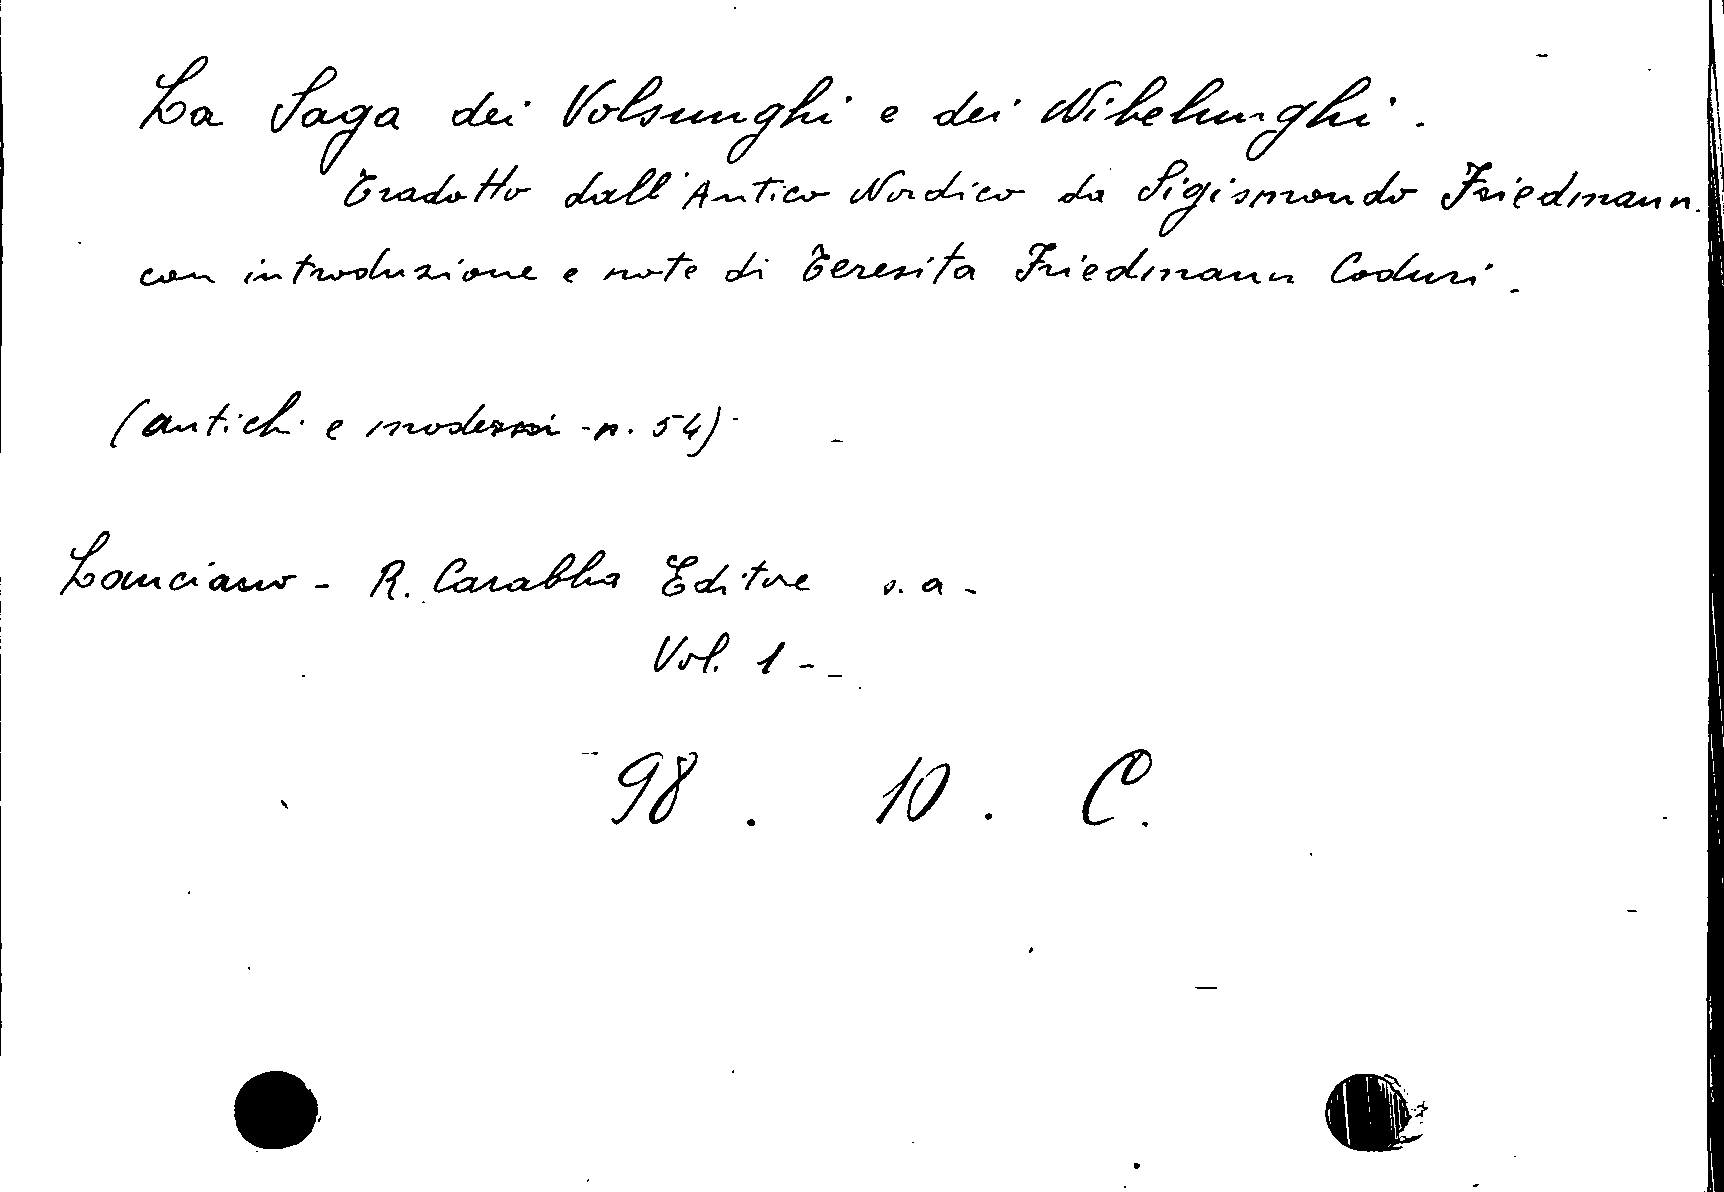 La Saga dei Volsunghi e dei Nibelunghi.
Tradotto dall'Antico Nordico da Sigismondo Friedmann.
con introduzione e note di Teresita Friedmann Coduri.
(antichi e moderni - n. 54)
Lanciano - R. Carabba Editore s. a -
Vol. 1 -
98 . 10 . C.